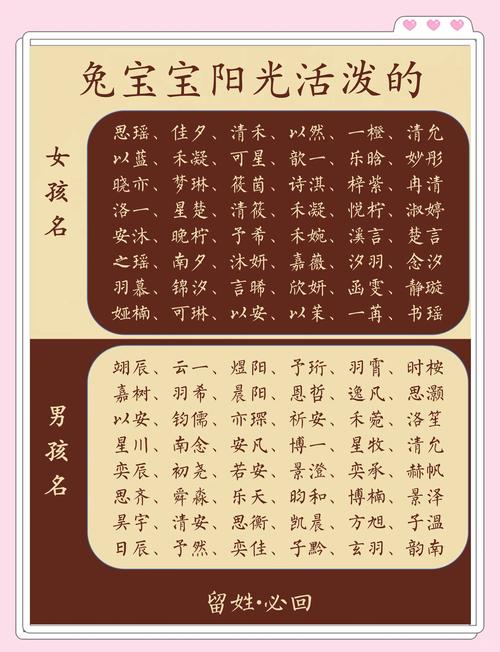 兔宝宝阳光活泼的
女孩名
思瑶、佳夕、清禾、以然、一橙、清允
以蓝、禾凝、可星、歆一、乐晗、妙彤
晓亦、梦琳、筱茵、诗淇、梓紫、冉清
洛一、星楚、清筱、禾凝、悦柠、淑婷
安沐、晚柠、予希、禾婉、溪言、楚言
之瑶、南夕、沐妍、嘉薇、汐羽、念汐
羽慕、锦汐、言晞、欣妍、函雯、静璇
娅楠、可琳、以安、以茉、一苒、书瑶
男孩名
翊辰、云一、煜阳、予珩、羽霄、时桉
嘉树、羽希、晨阳、恩哲、逸凡、思灏
以安、钧儒、亦琛、祈安、禾菀、洛笙
星川、南念、安凡、博一、星牧、清允
奕辰、初尧、若安、景澄、奕承、赫帆
思齐、舜淼、乐天、昀和、博楠、景泽
昊宇、清安、思衡、凯晨、方旭、子温
日辰、予然、奕佳、子黔、玄羽、韵南
留姓·必回